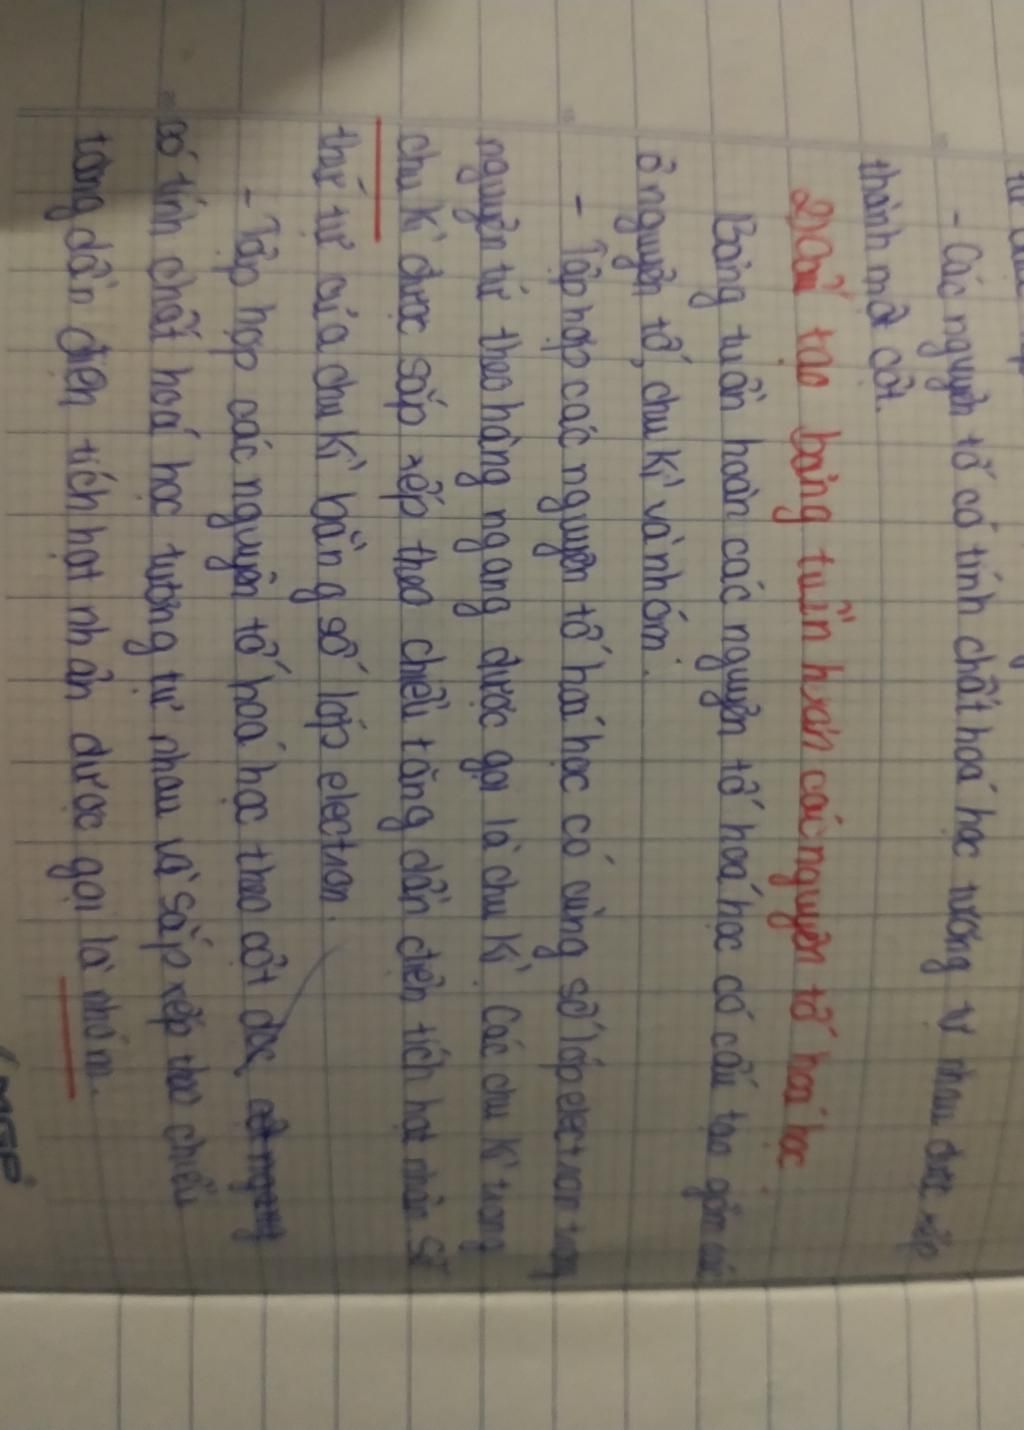 - Các nguyên tố có tính chất hoá học tương tự nhau được xếp
thành một cột.
2) Cấu tạo bảng tuần hoàn các nguyên tố hoá học
Bảng tuần hoàn các nguyên tố hoá học có cấu tạo gồm các
ô nguyên tố, chu kì và nhóm.
- Tập hợp các nguyên tố hoá học có cùng số lớp electron trong
nguyên tử theo hàng ngang được gọi là chu kì. Các chu kì trong
chu kì được sắp xếp theo chiều tăng dần điện tích hạt nhân số
thứ tự của chu kì bằng số lớp electron.
- Tập hợp các nguyên tố hoá học theo cột dọc,
có tính chất hoá học tương tự nhau và sắp xếp theo chiều
tăng dần điện tích hạt nhân được gọi là nhóm.